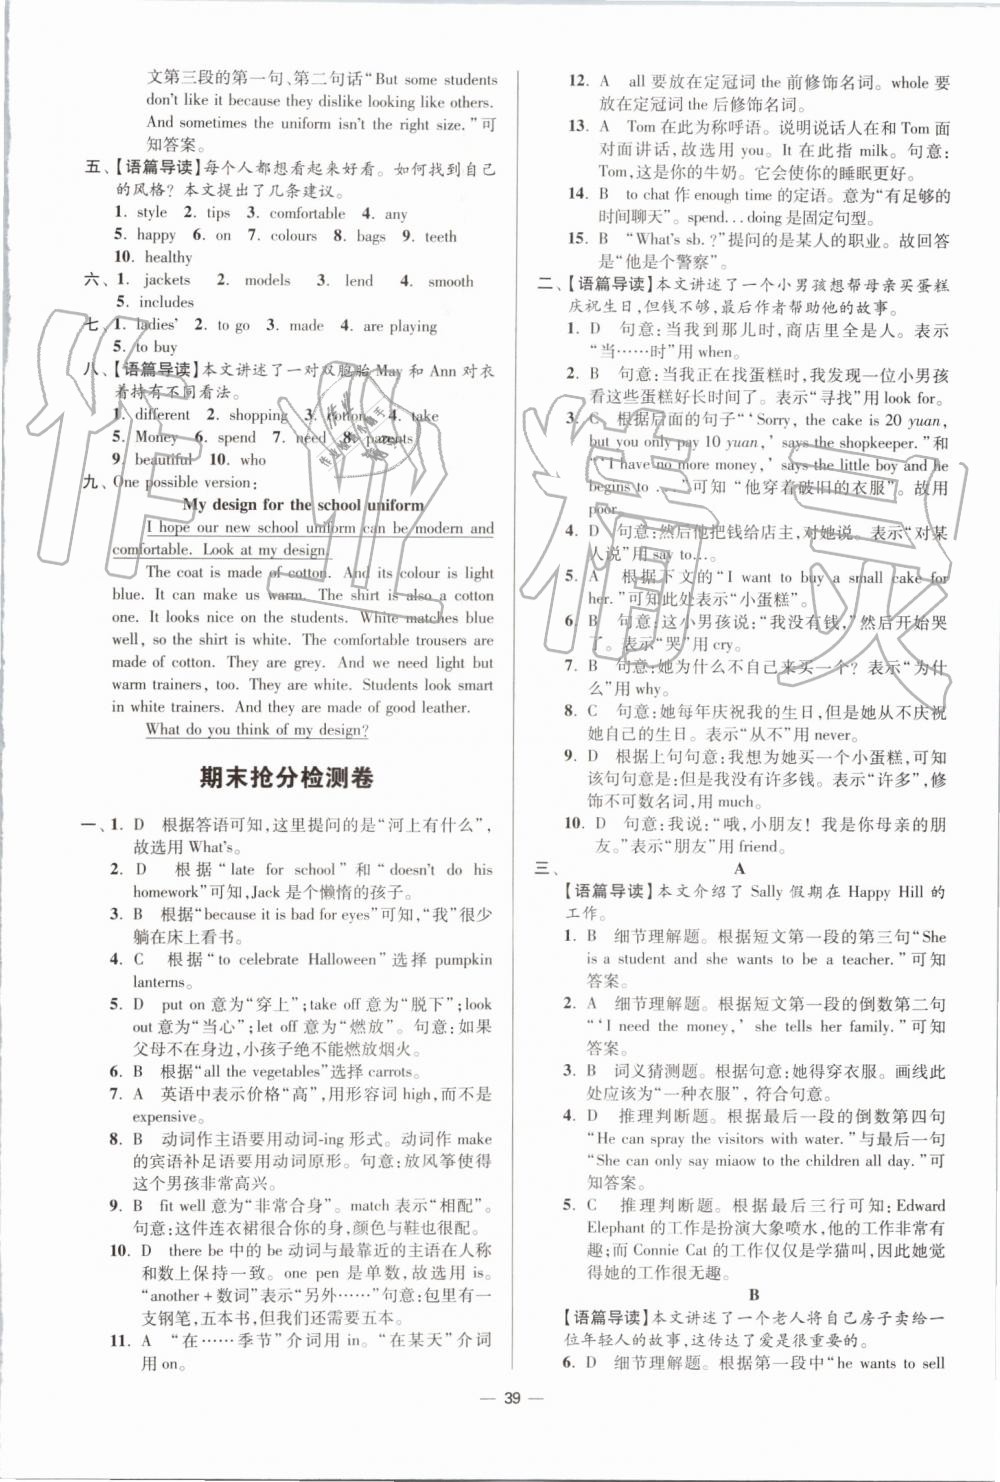 文第三段的第一句、第二句话“But some students
don't like it because they dislike looking like others.
And sometimes the uniform isn't the right size.”可
知答案。
五、【语篇导读】每个人都想看起来好看。如何找到自己
的风格？本文提出了几条建议。
1. style 2. tips 3. comfortable 4. any
5. happy 6. on 7. colours 8. bags 9. teeth
10. healthy
六、1. jackets 2. models 3. lend 4. smooth
5. includes
七、1. ladies' 2. to go 3. made 4. are playing
5. to buy
八、【语篇导读】本文讲述了一对双胞胎 May 和 Ann 对衣
着持有不同看法。
1. different 2. shopping 3. cotton 4. take
5. Money 6. spend 7. need 8. parents
9. beautiful 10. who
九、One possible version:
My design for the school uniform
I hope our new school uniform can be modern and
comfortable. Look at my design.
The coat is made of cotton. And its colour is light
blue. It can make us warm. The shirt is also a cotton
one. It looks nice on the students. White matches blue
well, so the shirt is white. The comfortable trousers are
made of cotton. They are grey. And we need light but
warm trainers, too. They are white. Students look smart
in white trainers. And they are made of good leather.
What do you think of my design?
期末抢分检测卷
一、1. D 根据答语可知，这里提问的是“河上有什么”，
故选用 What's。
2. D 根据“late for school”和“doesn't do his
homework”可知，Jack 是个懒惰的孩子。
3. B 根据“because it is bad for eyes”可知，“我”很少
躺在床上看书。
4. C 根据“to celebrate Halloween”选择 pumpkin
lanterns。
5. D put on 意为“穿上”；take off 意为“脱下”；look
out 意为“当心”；let off 意为“燃放”。句意：如果
父母不在身边，小孩子绝不能燃放烟火。
6. B 根据“all the vegetables”选择 carrots。
7. A 英语中表示价格“高”，用形容词 high，而不是
expensive。
8. B 动词作主语要用动词-ing 形式。动词作 make
的宾语补足语要用动词原形。句意：放风筝使得
这个男孩非常高兴。
9. B fit well 意为“非常合身”。match 表示“相配”。
句意：这件连衣裙很合你的身，颜色与鞋也很配。
10. D there be 中的 be 动词与最靠近的主语在人称
和数上保持一致。one pen 是单数，故用 is。
“another＋数词”表示“另外……”句意：包里有一
支钢笔，五本书，但我们还需要五本。
11. A “在……季节”介词用 in。“在某天”介词
用 on。
12. A all 要放在定冠词 the 前修饰名词。whole 要
放在定冠词 the 后修饰名词。
13. A Tom 在此为称呼语。说明说话人在和 Tom 面
对面讲话，故选用 you。It 此处指 milk。句意：
Tom，这是你的牛奶。它会使你的睡眠更好。
14. B to chat 作 enough time 的定语。意为“有足够的
时间聊天”。spend...doing 是固定句型。
15. B “What's sb. ?”提问的是某人的职业。故回答
是“他是个警察”。
二、【语篇导读】本文讲述了一个小男孩想帮母亲买蛋糕
庆祝生日，但钱不够，最后作者帮助他的故事。
1. D 句意：当我到那儿时，商店里全是人。表示
“当……时”用 when。
2. B 句意：当我正在找蛋糕时，我发现一位小男孩
看这些蛋糕好长时间了。表示“寻找”用 look for。
3. C 根据后面的句子“‘Sorry, the cake is 20 yuan,
but you only pay 10 yuan,’ says the shopkeeper.”和
“‘I have no more money,’ says the little boy and he
begins to ...”可知“他穿着破旧的衣服”。故用
poor。
4. D 句意：然后他把钱给店主，对她说。表示“对某
人说”用 say to...。
5. A 根据下文的“I want to buy a small cake for
her.”可知此处表示“小蛋糕”。
6. B 句意：这小男孩说：“我没有钱，”然后开始哭
了。表示“哭”用 cry。
7. B 句意：她为什么不自己来买一个？表示“为什
么”用 why。
8. C 句意：她每年庆祝我的生日，但是从不庆祝
她自己的生日。表示“从不”用 never。
9. D 根据上句句意：我想为她买一个小蛋糕，可知
该句句意是：但是我没有许多钱。表示“许多”，修
饰不可数名词，用 much。
10. D 句意：我说：“哦，小朋友！我是你母亲的朋
友。”表示“朋友”用 friend。
三、 A
【语篇导读】本文介绍了 Sally 假期在 Happy Hill 的
工作。
1. B 细节理解题。根据短文第一段的第三句“She
is a student and she wants to be a teacher.”可知
答案。
2. A 细节理解题。根据短文第一段的倒数第二句
“‘I need the money,’ she tells her family.”可知
答案。
3. B 词义猜测题。根据句意：她得穿衣服。画线此
处应该为“一种衣服”，符合句意。
4. D 推理判断题。根据最后一段的倒数第四句
“He can spray the visitors with water.”与最后一句
“She can only say miaow to the children all day.”可
知答案。
5. C 推理判断题。根据最后三行可知：Edward
Elephant 的工作是扮演大象喷水，他的工作非常有
趣；而 Connie Cat 的工作仅仅是学猫叫，因此她觉
得她的工作很无趣。
B
【语篇导读】本文讲述了一个老人将自己房子卖给一
位年轻人的故事，这传达了爱是很重要的。
6. D 细节理解题。根据第一段中“he wants to sell
— 39 —
作业精灵